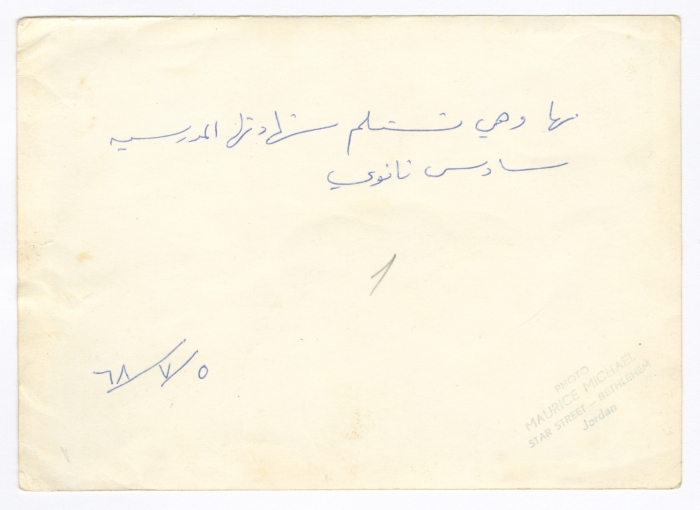 نها وهي تستلم شهادتها المدرسيه
سادس ثانوي
١
٥/٧/٦٨
PHOTO
MAURICE MICHAEL
STAR STREET - BETHLEHEM
Jordan